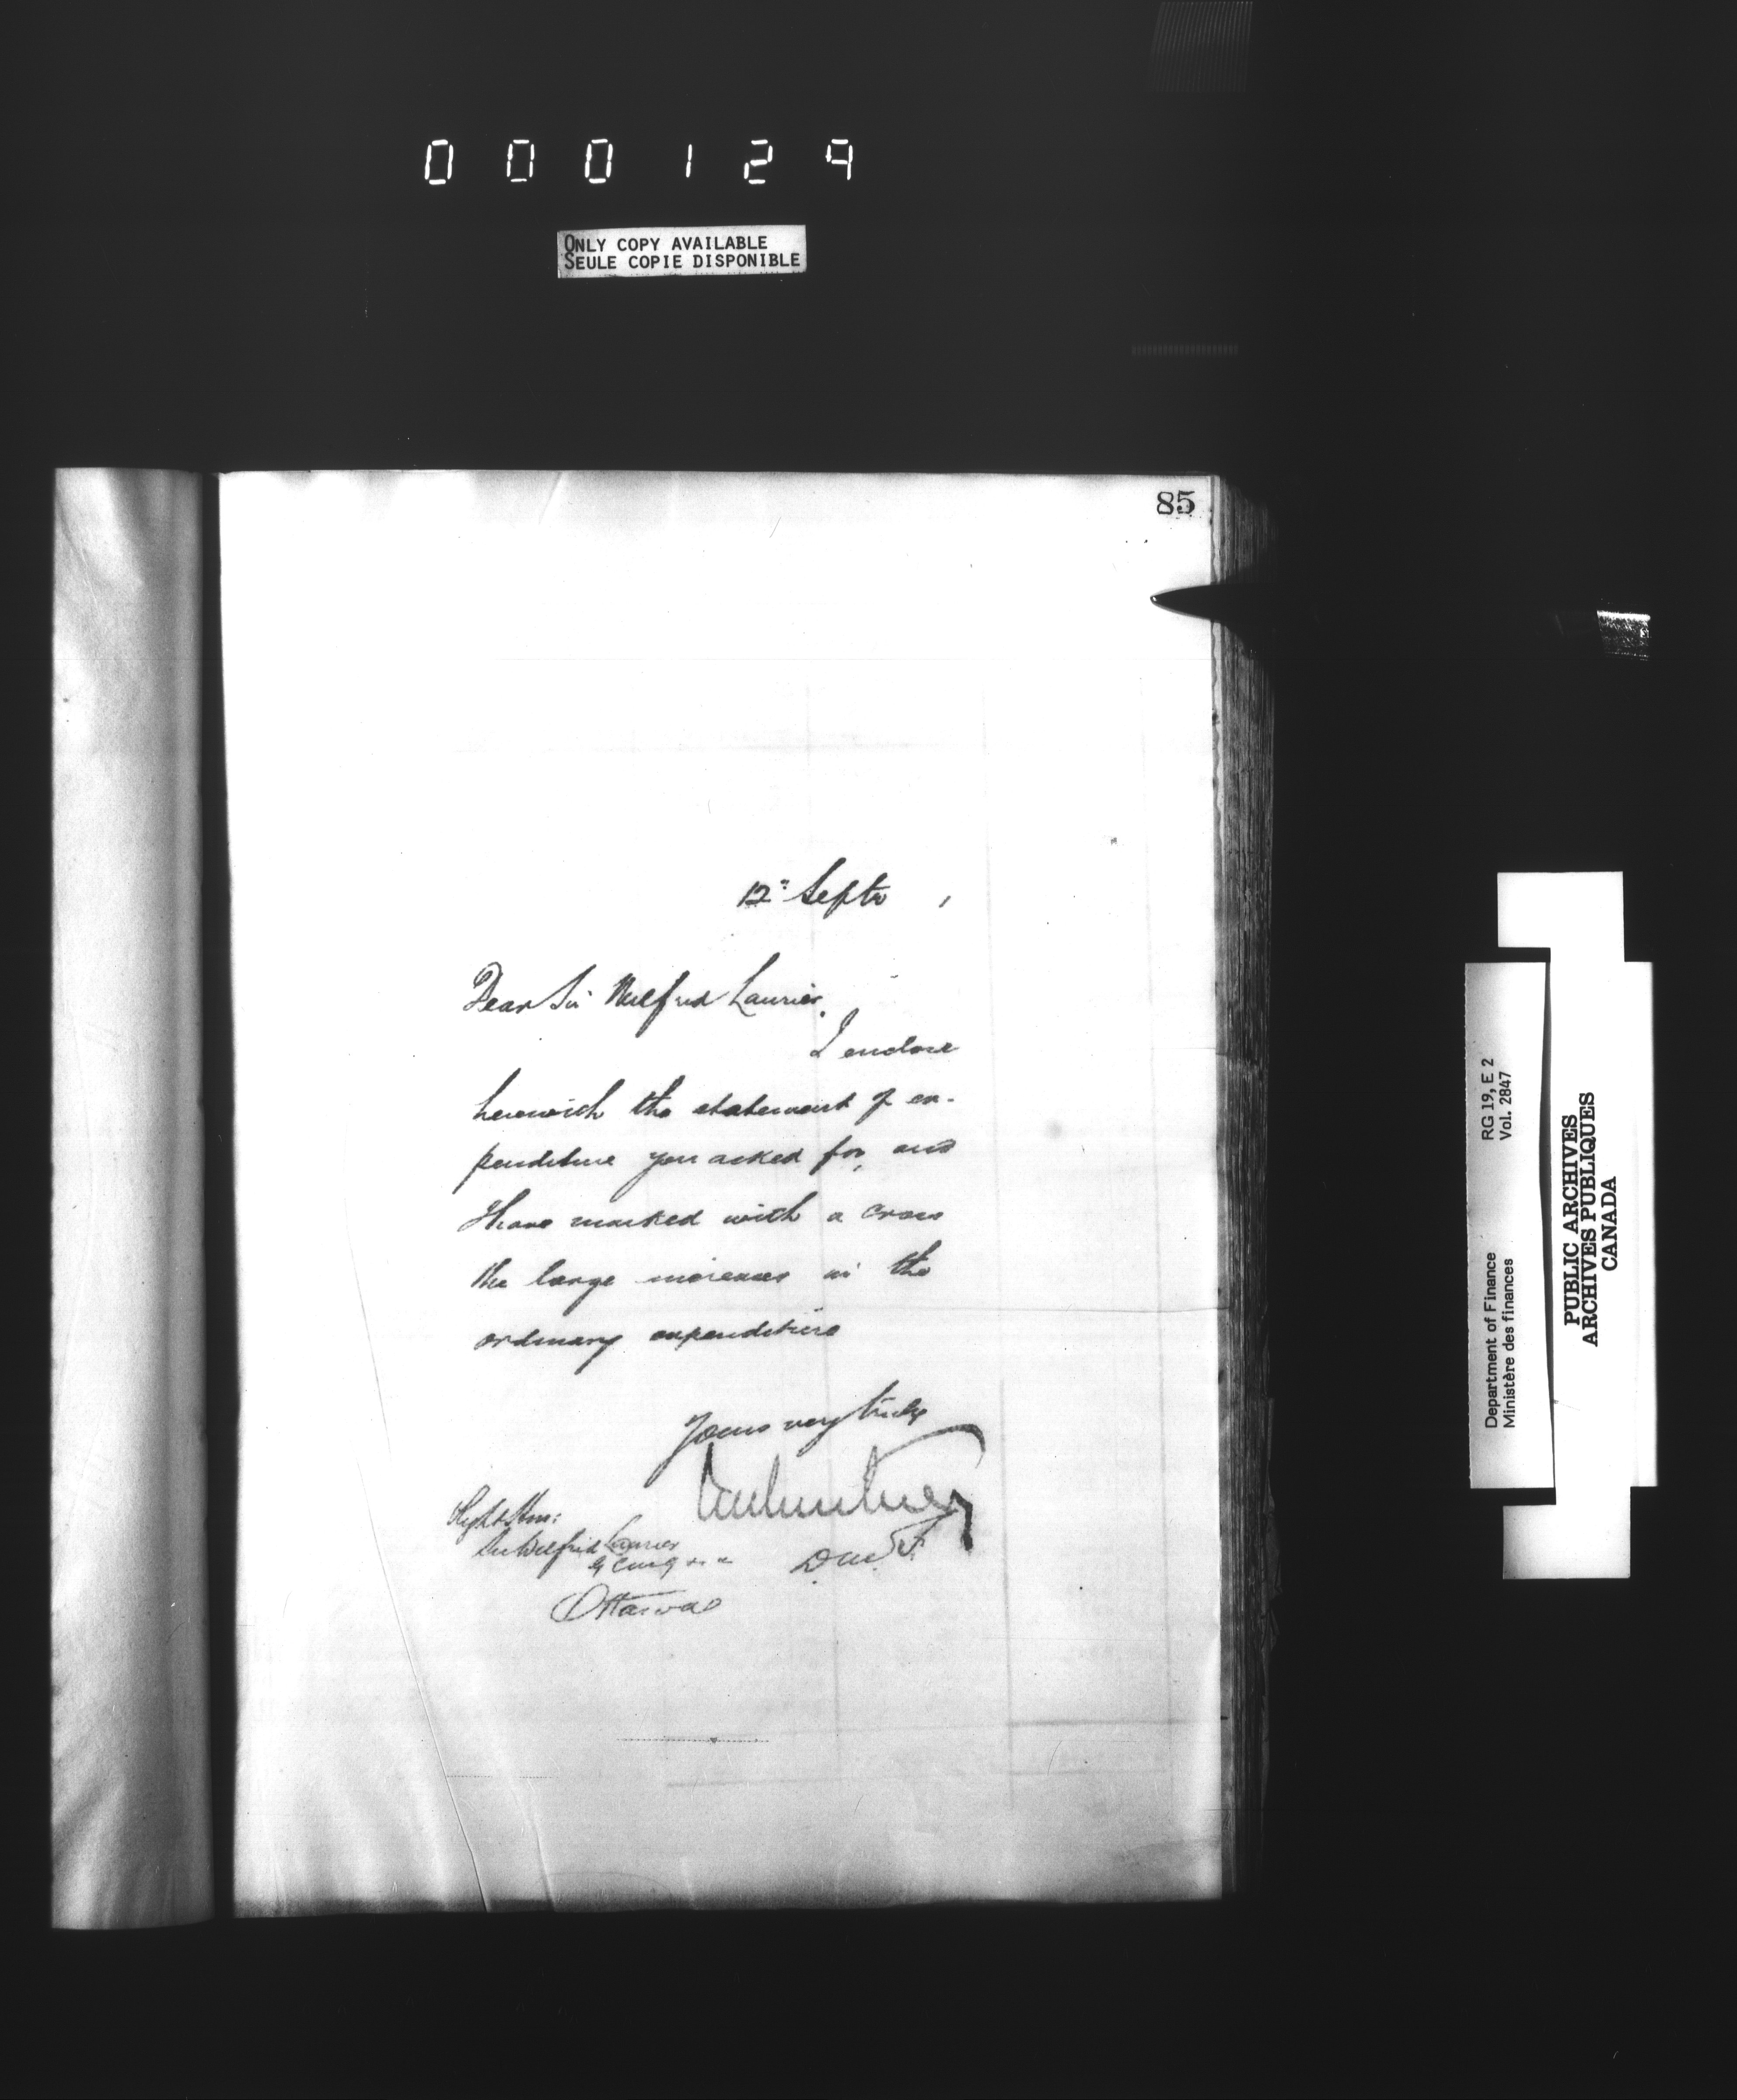 000129
ONLY COPY AVAILABLE
SEULE COPIE DISPONIBLE
85
12" Septr
Dear Sir Wilfrid Laurier,
I enclose
herewith the statement of ex-
penditure you asked for, and
I have marked with a cross
the large increases in the
ordinary expenditure
Yours very truly
D.M.F.
Right Hon:
Sir Wilfrid Laurier
G.C.M.G.
Ottawa
Department of Finance RG 19, E 2
Ministère des finances Vol. 2847
PUBLIC ARCHIVES
ARCHIVES PUBLIQUES
CANADA